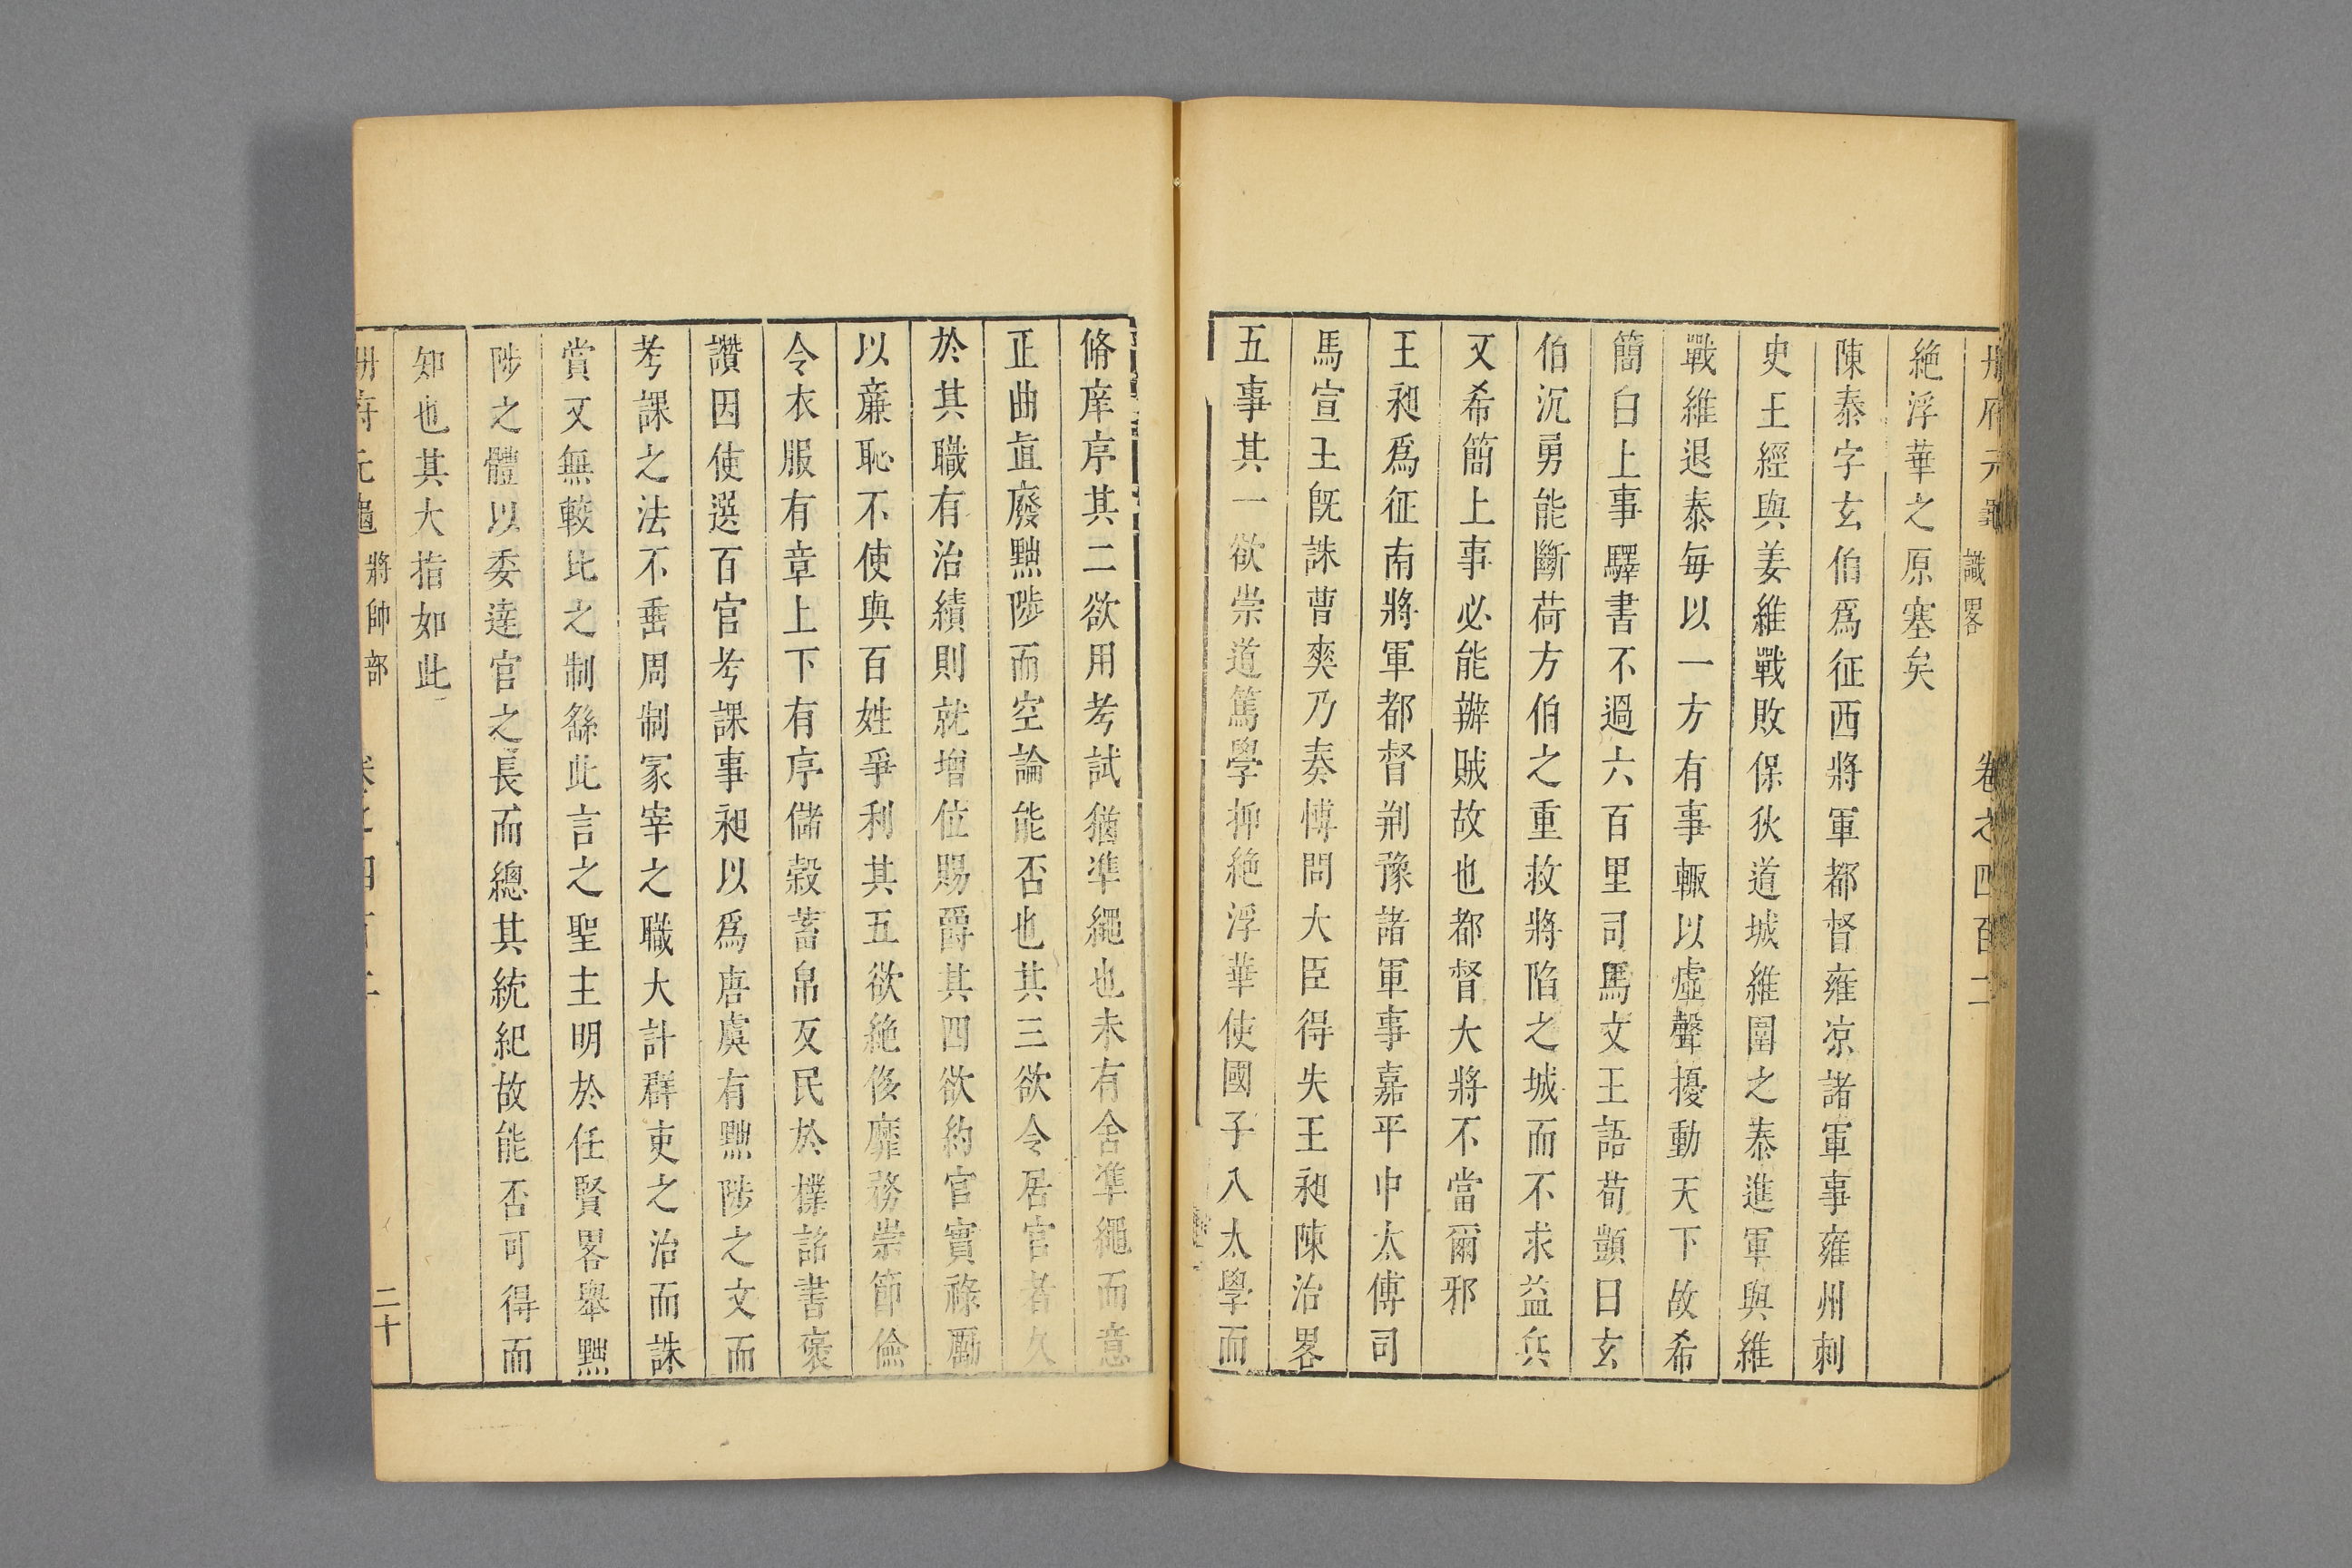 冊府元龜 識畧 卷之四百二
絶浮華之原塞矣
陳泰字玄伯爲征西將軍都督雍凉諸軍事雍州刺
史王經與姜維戰敗保狄道城維圍之泰進軍與維
戰維退泰毎以一方有事輙以虛聲擾動天下故希
簡白上事驛書不過六百里司馬文王語荀顗曰玄
伯沉勇能斷荷方伯之重救將陷之城而不求益兵
又希簡上事必能辦賊故也都督大將不當爾邪
王昶爲征南將軍都督荆豫諸軍事嘉平中太傅司
馬宣王旣誅曹爽乃奏博問大臣得失王昶陳治畧
五事其一欲崇道篤學抑絶浮華使國子入太學而
脩庠序其二欲用考試猶凖繩也未有舍凖繩而意
正曲直廢黜陟而空論能否也其三欲令居官者久
於其職有治績則就增位賜爵其四欲約官實祿勵
以亷恥不使與百姓爭利其五欲絶侈靡務崇節儉
令衣服有章上下有序儲穀蓄帛反民於撲詔書褒
讚因使選百官考課事昶以爲唐虞有黜陟之文而
考課之法不垂周制冢宰之職大計群吏之治而誅
賞又無較比之制繇此言之聖主明於任賢畧舉黜
陟之體以委達官之長而總其統紀故能否可得而
知也其大指如此
冊府元龜 將帥部 卷之四百二 二十